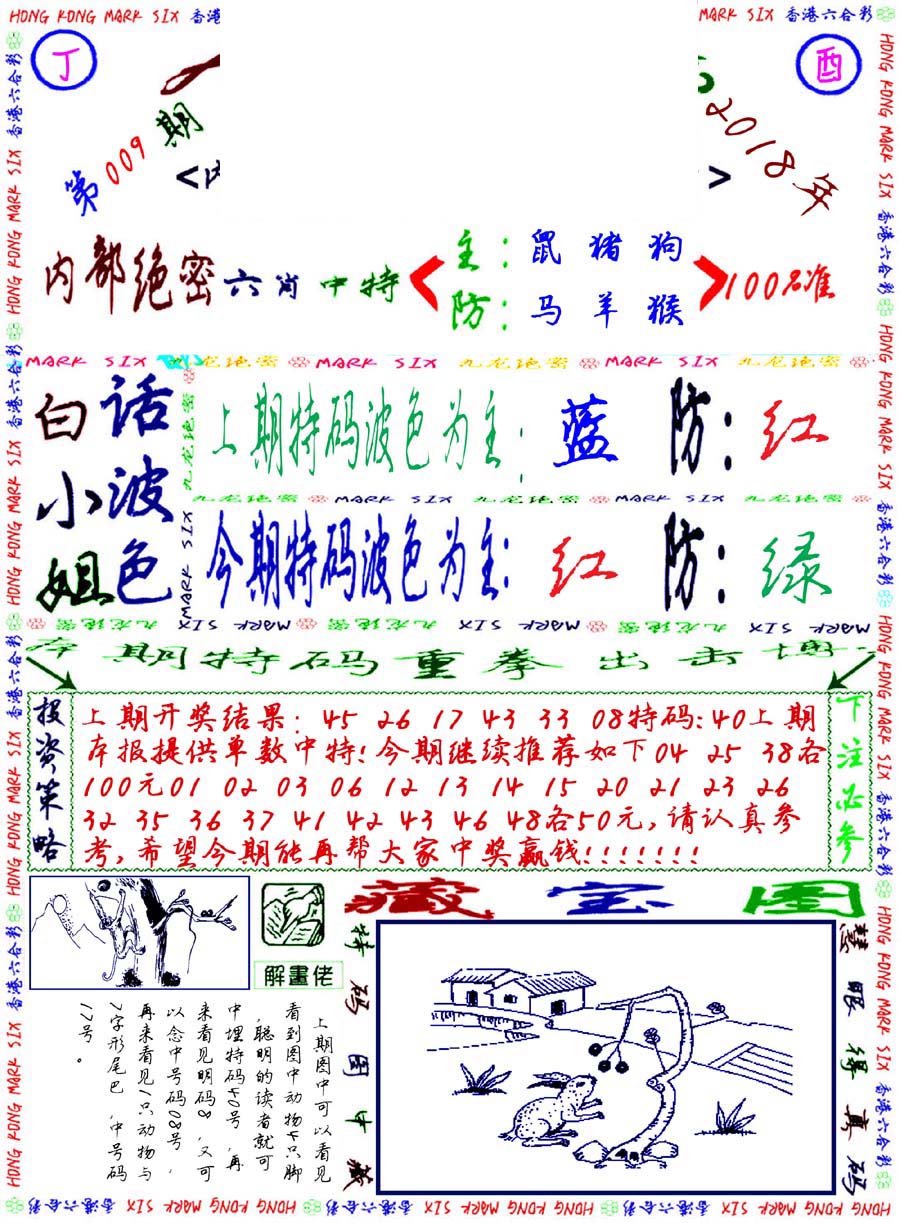 HONG KONG MARK SIX 香港
MARK SIX 香港六合彩
丁
酉
第009期
2018年
内部绝密六肖中特
主:鼠猪狗
防:马羊猴
100%准
MARK SIX 九龙绝密 MARK SIX 九龙绝密 MARK SIX 九龙绝密
白小姐
话波色
上期特码波色为主:蓝 防:红
九龙绝密 MARK SIX 九龙绝密 MARK SIX 九龙绝密
今期特码波色为主:红 防:绿
本期特码重拳出击
投资策略
上期开奖结果:45 26 17 43 33 08特码:40上期
本报提供单数中特!今期继续推荐如下04 25 38各
100元01 02 03 06 12 13 14 15 20 21 23 26
32 35 36 37 41 42 43 46 48各50元,请认真参
考,希望今期能再帮大家中奖赢钱!!!!!!!
下注必参
藏宝图
解畫佬
特码图中藏
慧眼得真码
上期图中可以看见
看到图中动物4只脚
,聪明的读者就可
中埋特码40号,再
来看见明码8,又可
以念中号码08号,
再来看见1只动物与
7字形尾巴,中号码
17号。
HONG KONG MARK SIX 香港六合彩